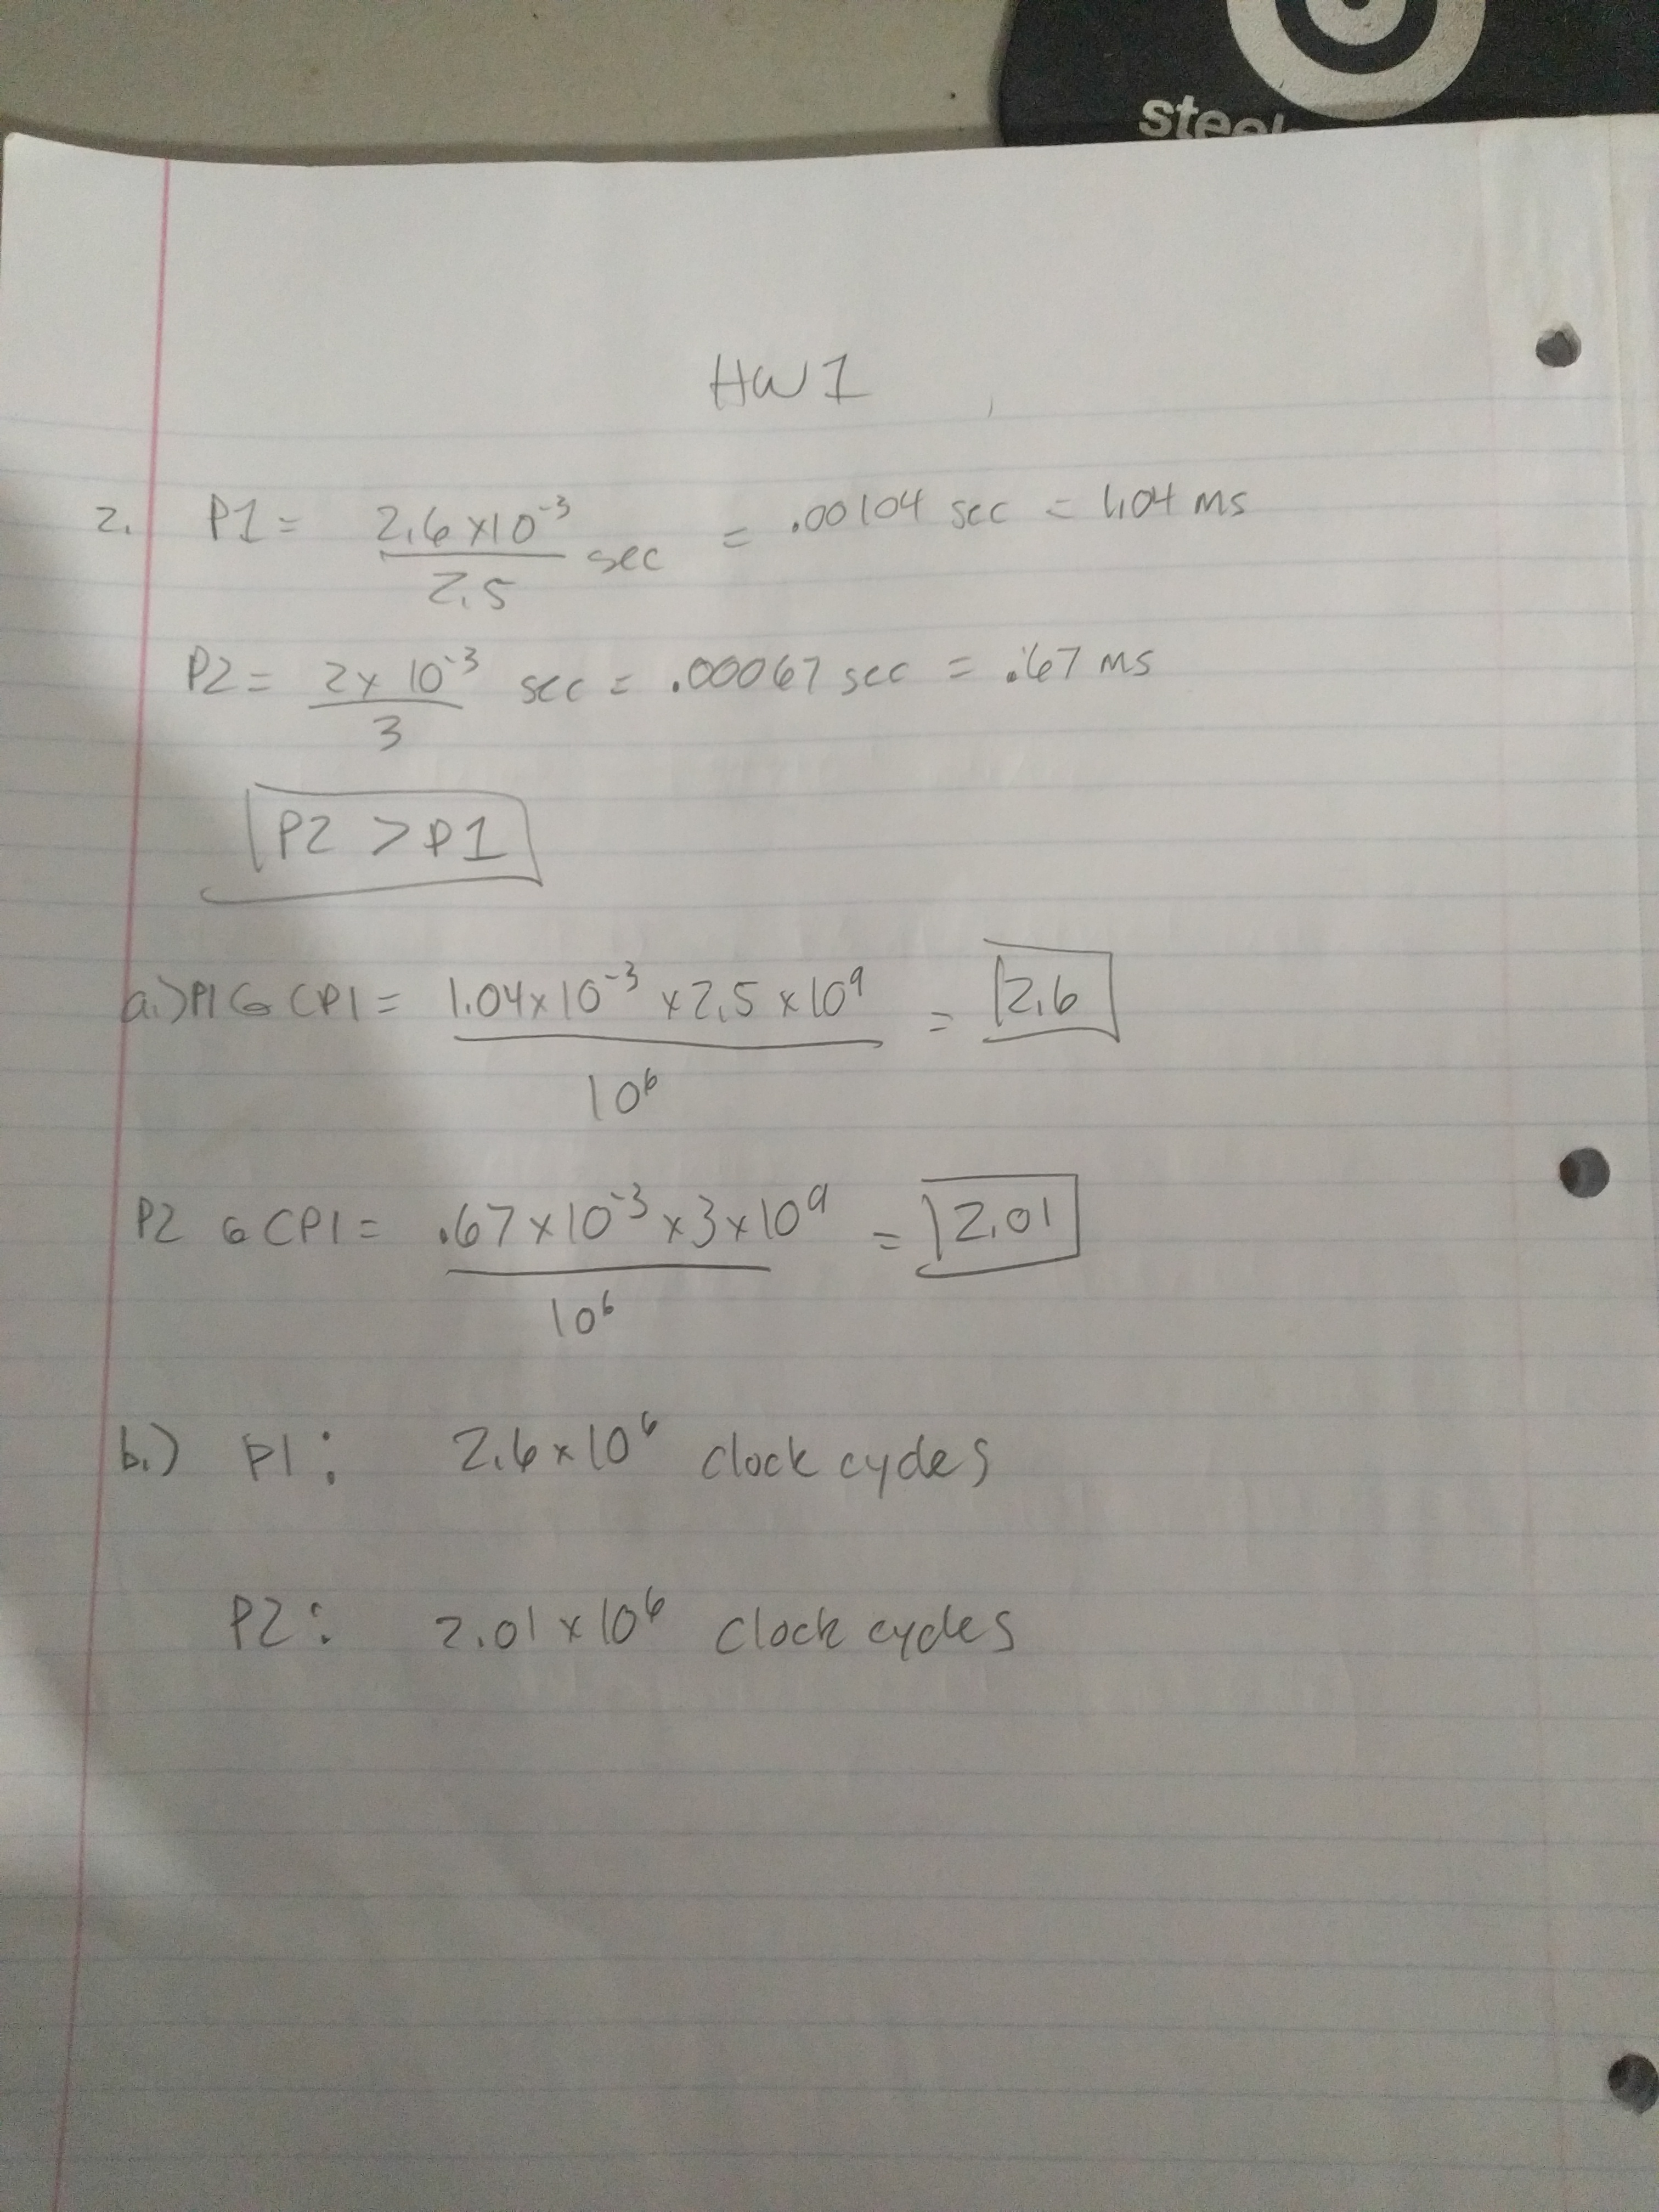 steel
HW1
2. P1 = 2.6 x10^-3 / 2.5 sec = .00104 sec = 1.04 ms
P2 = 2 x 10^-3 / 3 sec = .00067 sec = .67 ms
P2 > P1
a.) P1 G CPI = 1.04 x 10^-3 x 2.5 x 10^9 / 10^6 = 2.6
P2 G CPI = .67 x 10^-3 x 3 x 10^9 / 10^6 = 2.01
b.) P1: 2.6 x 10^6 clock cycles
P2: 2.01 x 10^6 clock cycles